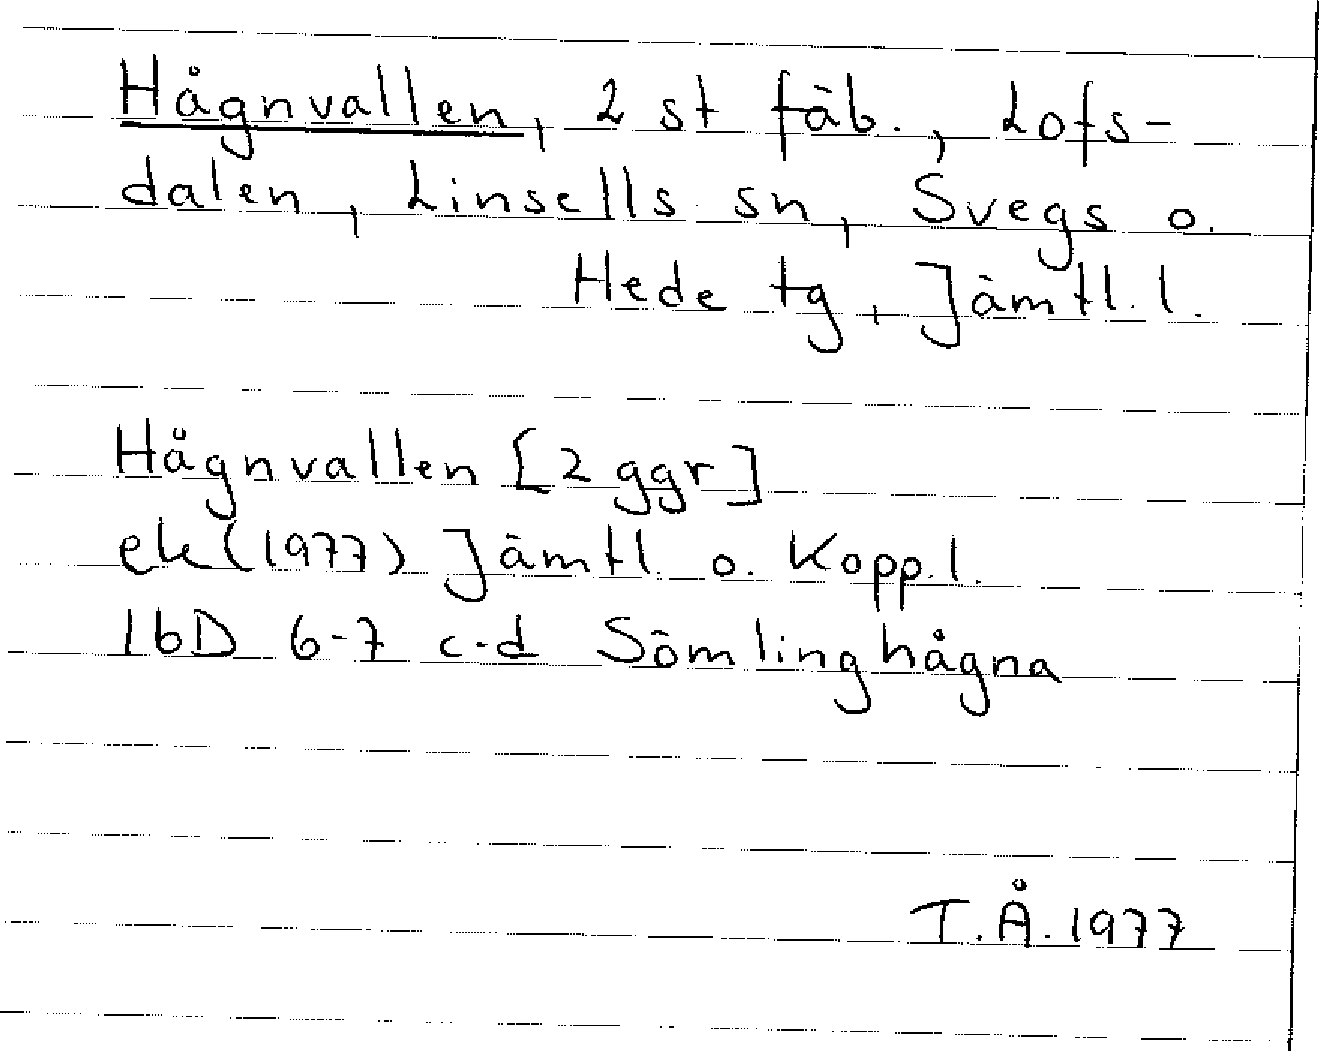 Hågnvallen, 2 st fäb., Lofs-
dalen, Linsells sn, Svegs o.
Hede tg, Jämtl. l.
Hågnvallen [2 ggr]
ek (1977) Jämtl. o. Kopp. l.
16D 6-7 c-d Sömlinghågna
T.Å. 1977